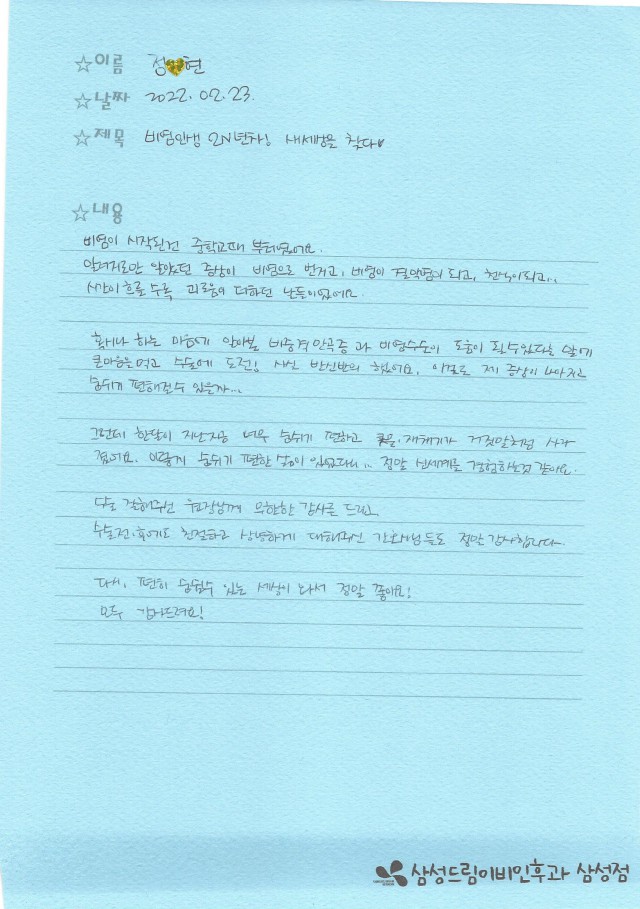 ☆이름 정💛현
☆날짜 2022.02.23.
☆제목 비염인생 2N년차! 새세상을 찾다♥
☆내용
비염이 시작된건 중학교때 부터였어요.
알러지로만 알았던 증상이 비염으로 번지고, 비염이 결막염이 되고, 천식이되고...
시간이 흐를 수록 괴로움이 더하던 날들이었어요.
혹시나 하는 마음에 알아본 비중격 만곡증과 비염수술이 도움이 될 수 있다는 말에
큰마음을 먹고 수술에 도전! 사실 반신반의 했어요, 이걸로 제 증상이 나아지고
숨쉬기 편해질 수 있을까...
그런데 한달이 지난지금 너무 숨쉬기 편하고 콧물, 재채기가 거짓말처럼 사라
졌어요. 이렇게 숨쉬기 편한 삶이 있었다니... 정말 신세계를 경험하는것 같아요.
수술 집도해주신 원장님께 무한한 감사를 드리고,
수술전.후에도 친절하고 상냥하게 대해주신 간호사님들도 정말 감사합니다.
다시, 편히 숨쉴수 있는 세상이 와서 정말 좋아요!
모두 감사드려요!
삼성드림이비인후과 삼성점